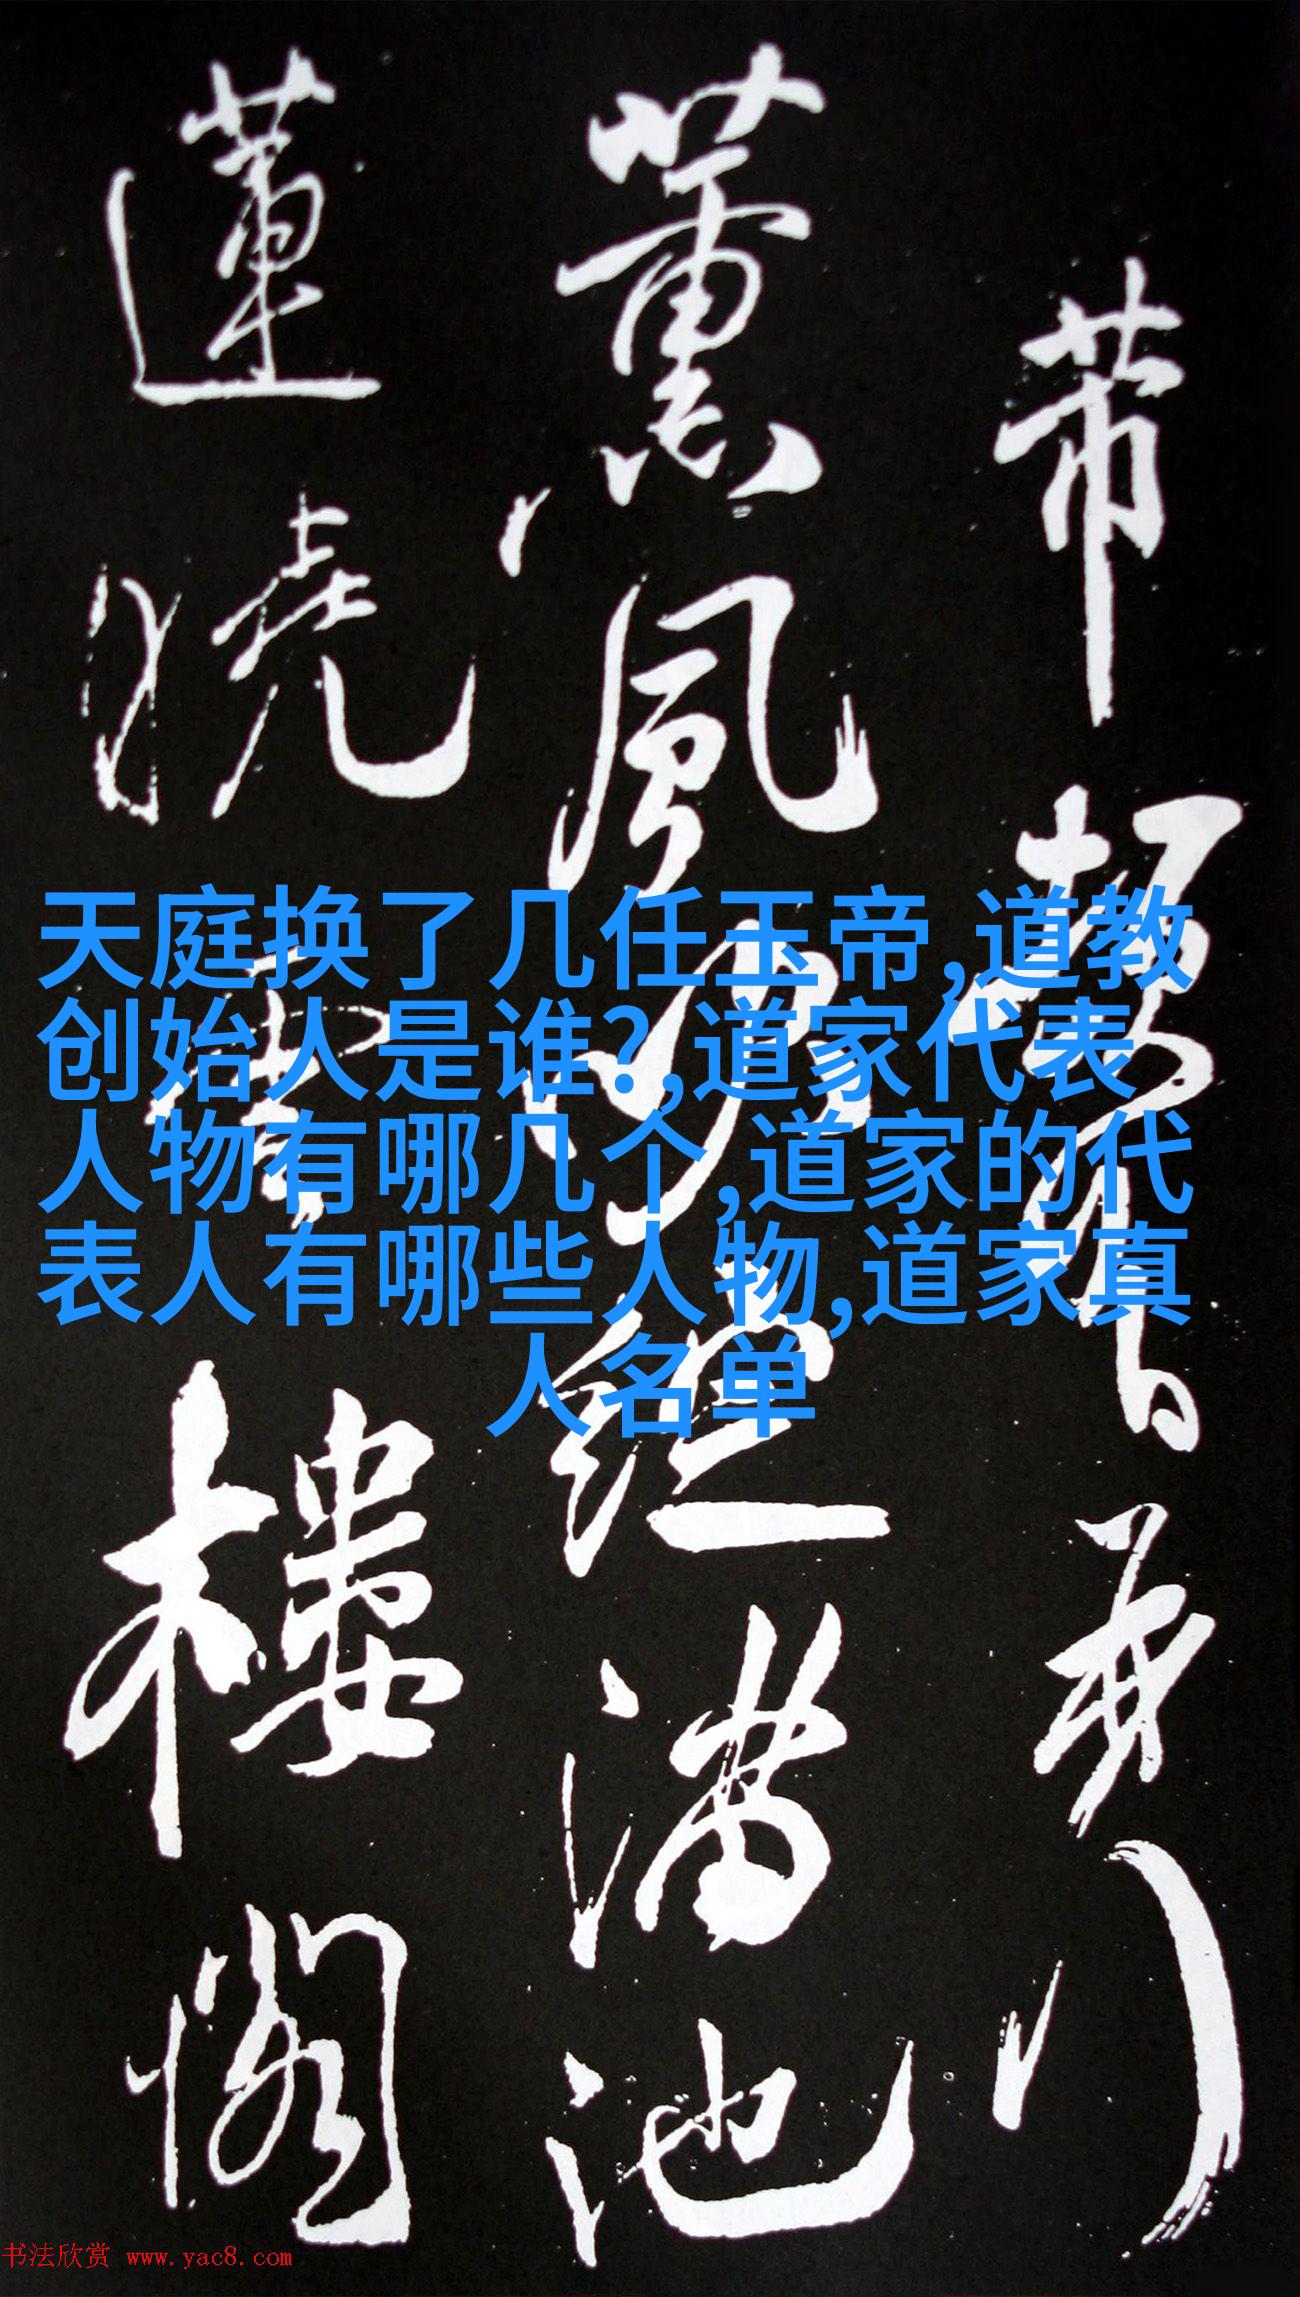 天庭换了几任玉帝,道教
创始人是谁?,道家代表
人物有哪几个,道家的代
表人有哪些人物,道家真
人名单
芾
薰風 滿池
蓮 樓閣
书法欣赏 www.yac8.com